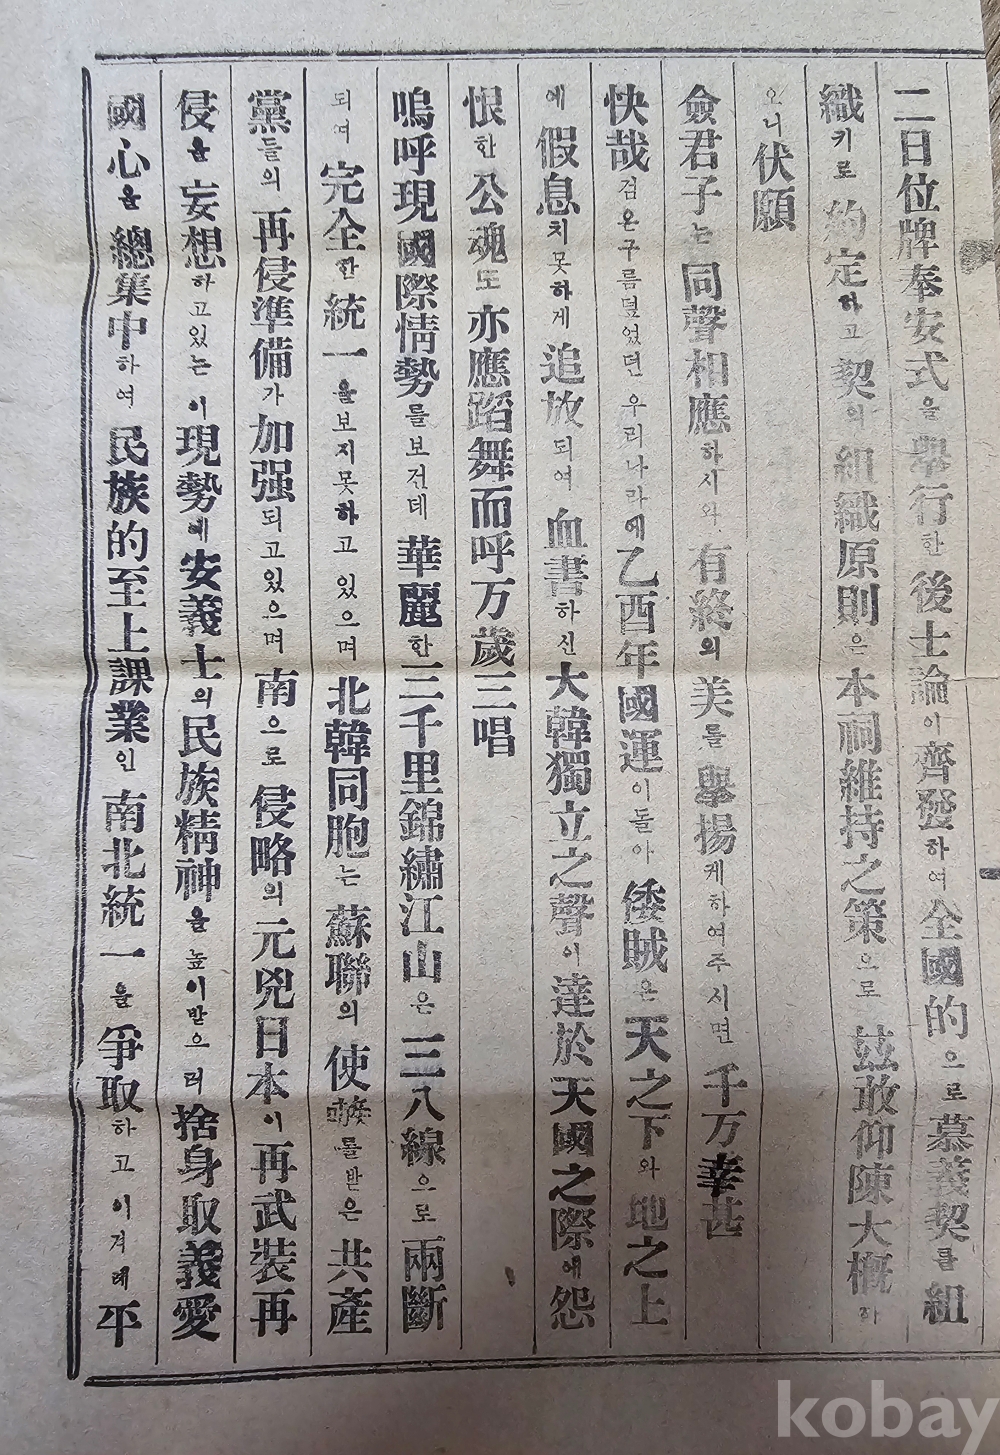 二日位牌奉安式을擧行한後士論이齊發하여全國的으로慕義契를組
織키로約定하고契의組織原則은本祠維持之策으로玆敢仰陳大槪하
오니伏願
僉君子는同聲相應하시와有終의美를擧揚케하여주시면千万幸甚
快哉검은구름덮었던우리나라에乙酉年國運이돌아倭賊은天之下와地之上
에假息치못하게追放되여血書하신大韓獨立之聲이達於天國之際에怨
恨한公魂도亦應蹈舞而呼万歲三唱
嗚呼現國際情勢를보건데華麗한三千里錦繡江山은三八線으로兩斷
되여完全한統一을보지못하고있으며北韓同胞는蘇聯의使嗾를받은共產
黨들의再侵準備가加强되고있으며南으로侵略의元兇日本이再武裝再
侵을妄想하고있는이現勢에安義士의民族精神을높이받으러捨身取義愛
國心을總集中하여民族的至上課業인南北統一을爭取하고이겨레平
kobay